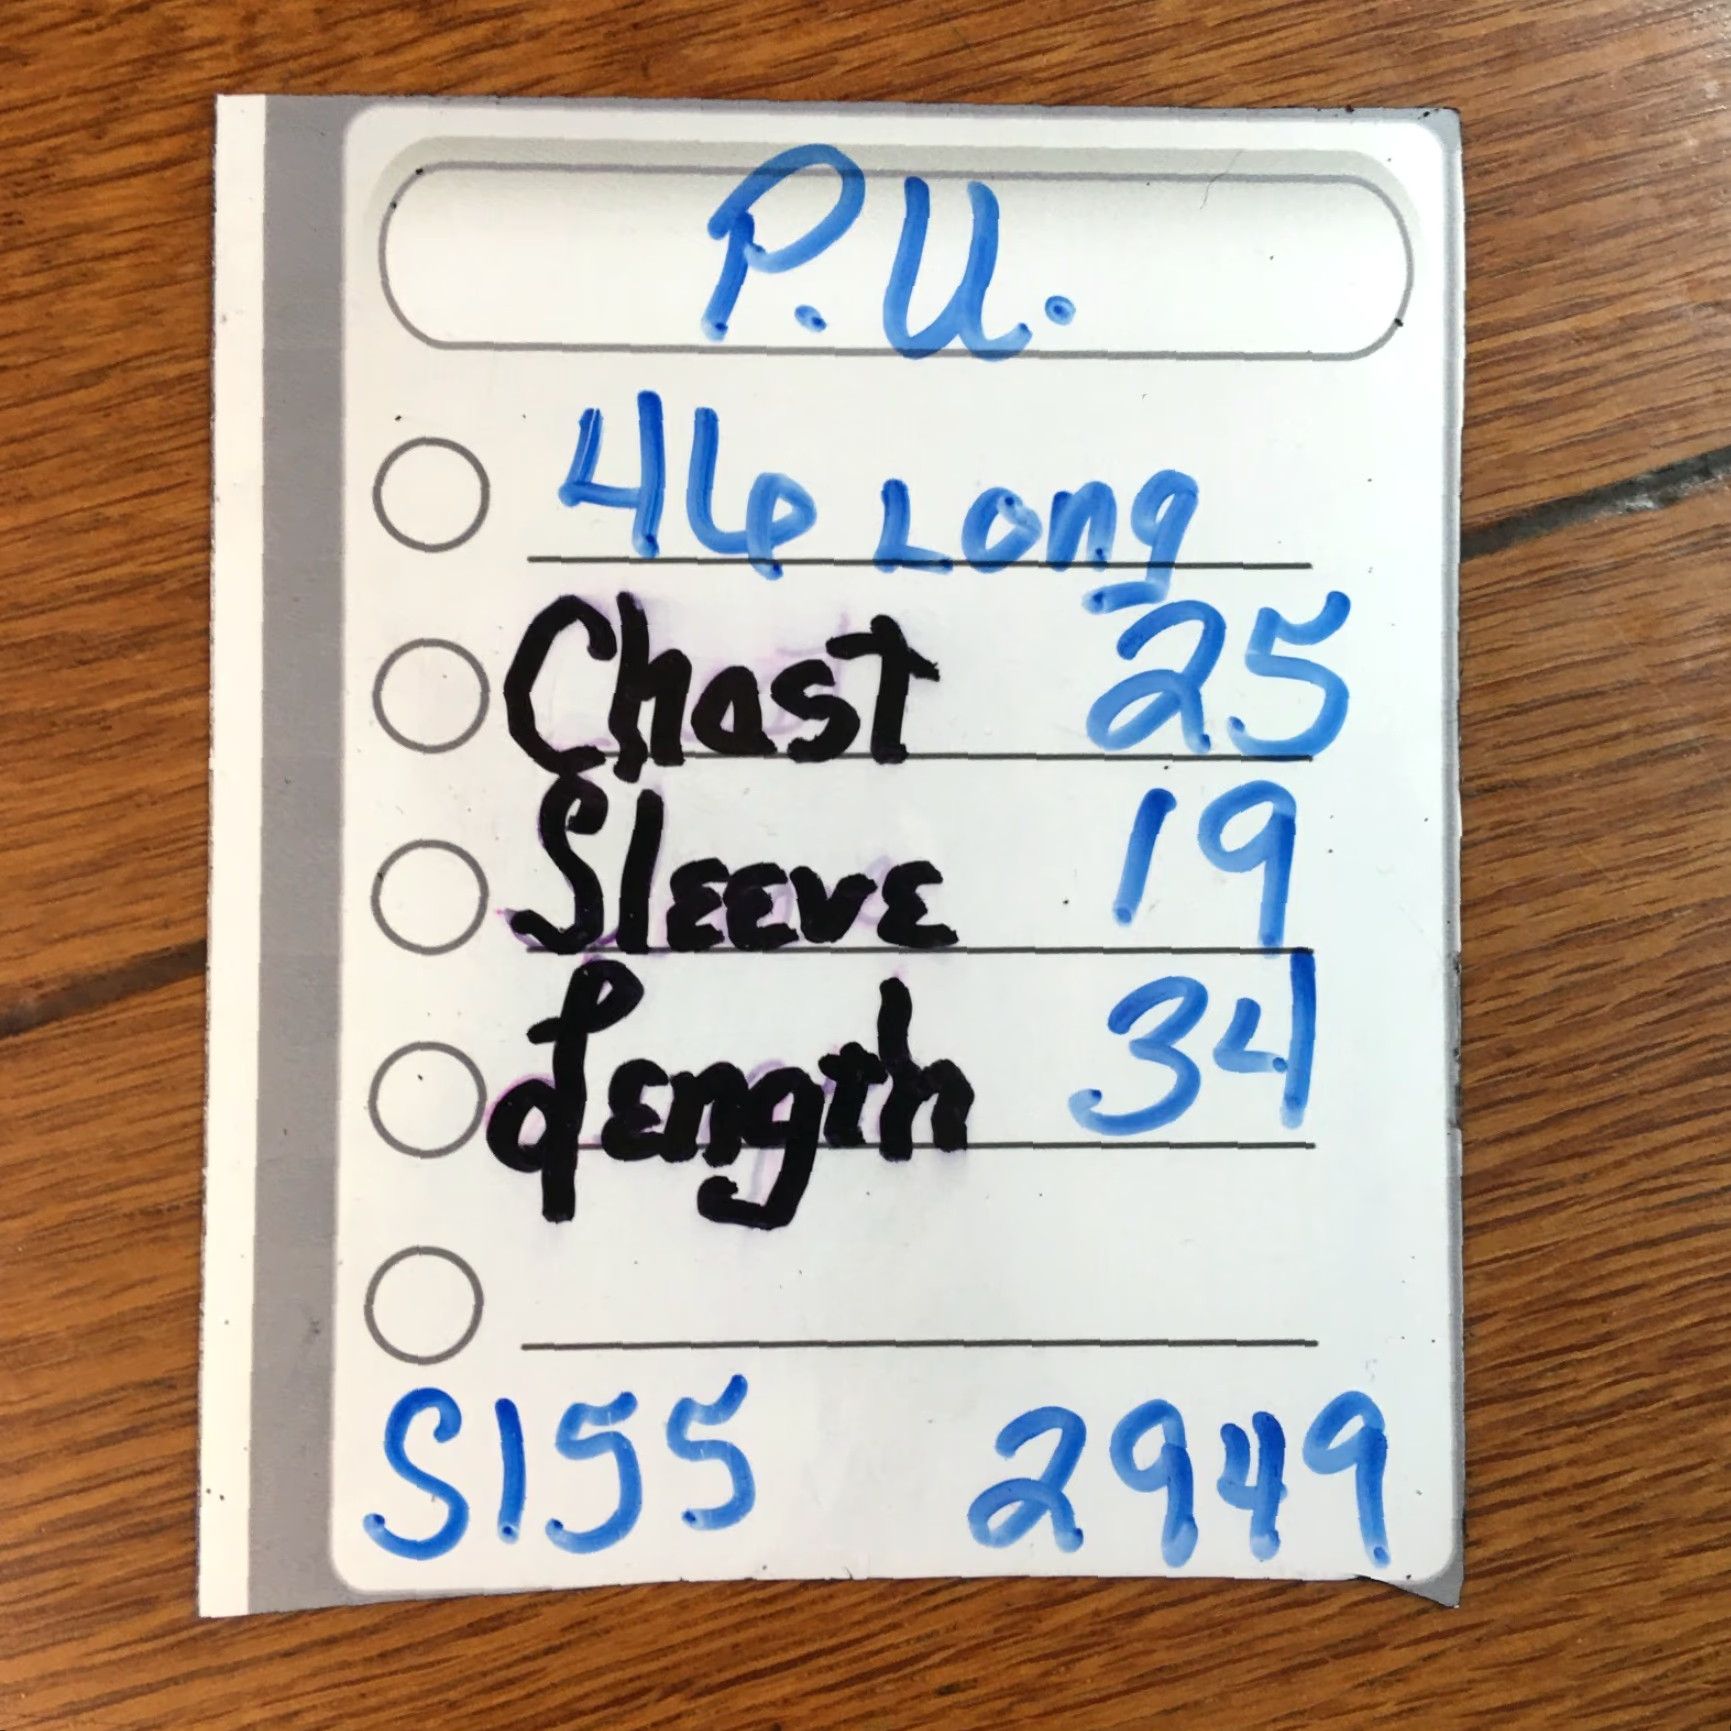 P.U.
46 Long
Chast 25
Sleeve 19
Length 34
S155 2949